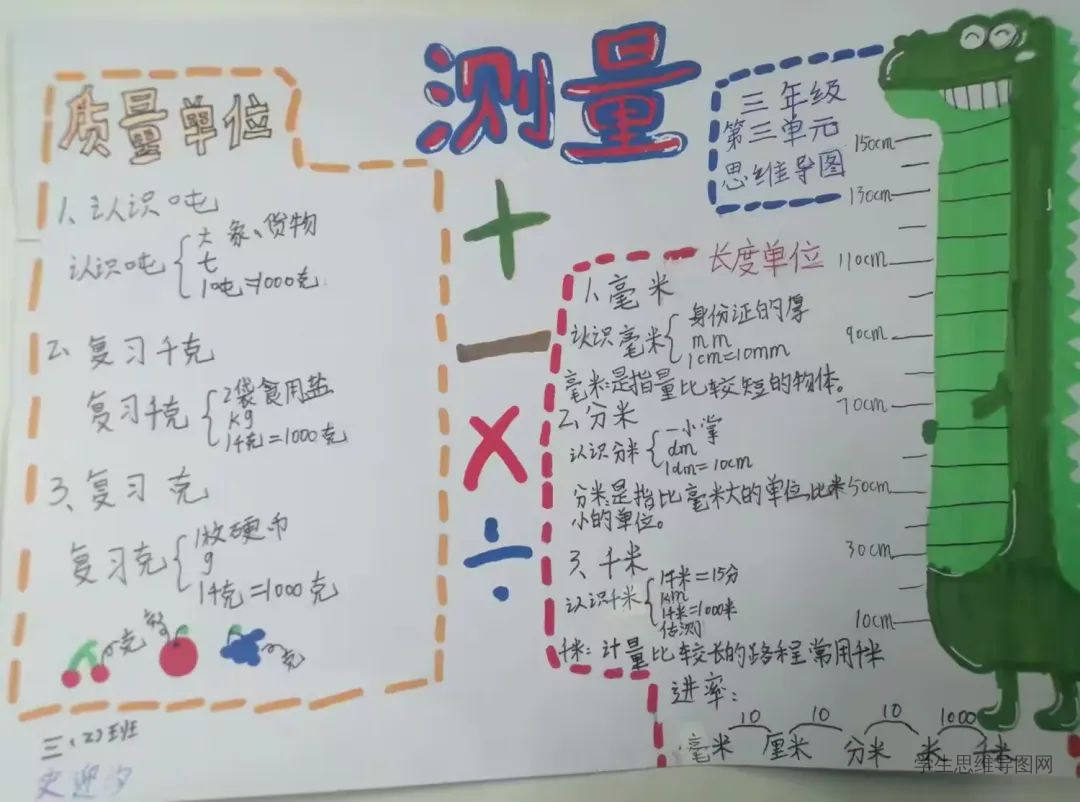 测量
三年级
第三单元
思维导图
质量单位
1、认识吨
认识吨
大象、货物
t
1吨=1000克
2、复习千克
复习千克
2袋食用盐
kg
1千克=1000克
3、复习克
复习克
1枚硬币
g
1千克=1000克
克
克
三、(2)班
+
−
×
÷
长度单位
1、毫米
认识毫米
身份证的厚
mm
1cm=10mm
毫米:是指量比较短的物体。
2、分米
认识分米
一小掌
dm
1dm=10cm
分米:是指比毫米大的单位,比米
小的单位。
3、千米
认识千米
1千米=15分
km
1千米=1000米
估测
千米:计量比较长的路程常用千米
进率:
10 10 10 1000
毫米 厘米 分米 米 千米
150cm
130cm
110cm
90cm
70cm
50cm
30cm
10cm
学生思维导图网